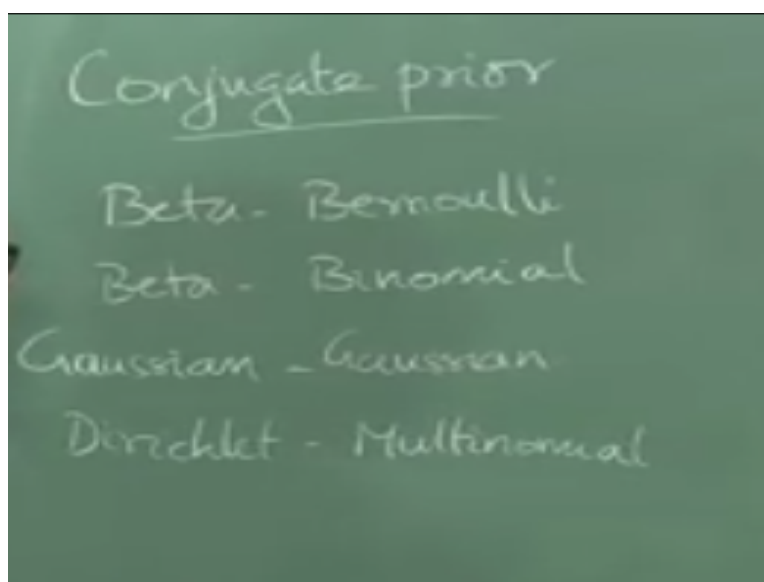 Conjugate prior
Beta - Bernoulli
Beta - Binomial
Gaussian - Gaussian
Dirichlet - Multinomial